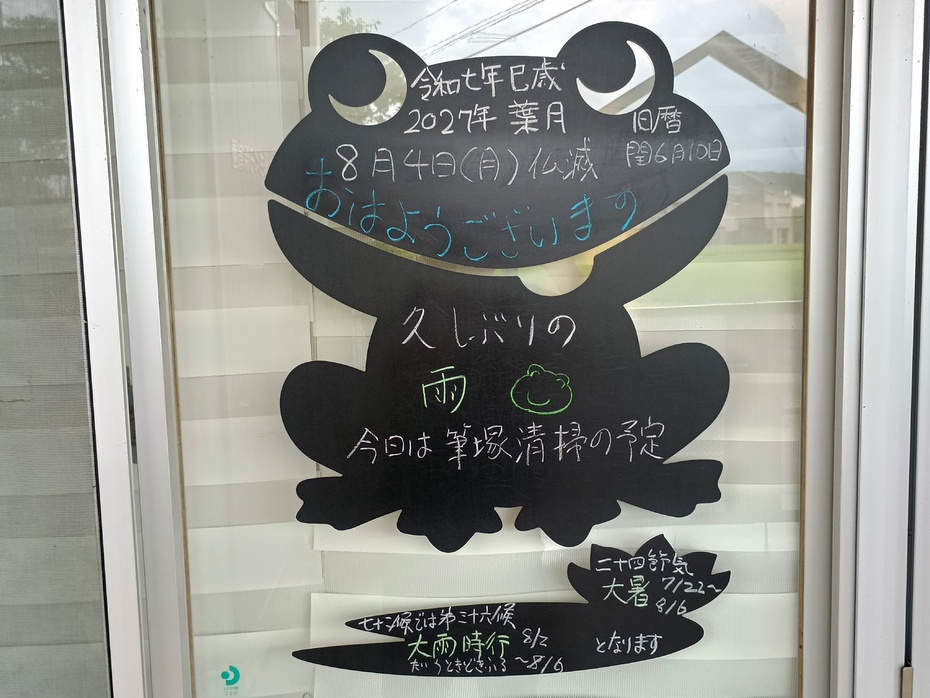 令和七年巳歳
2027年 葉月
旧暦
8月4日(月)仏滅
閏6月10日
おはようございます
久しぶりの
雨
今日は筆塚清掃の予定
二十四節気
大暑 7/22~
8/6
七十二候では第三十六候
大雨時行 8/2
だいうときどきふる ~8/6
となります